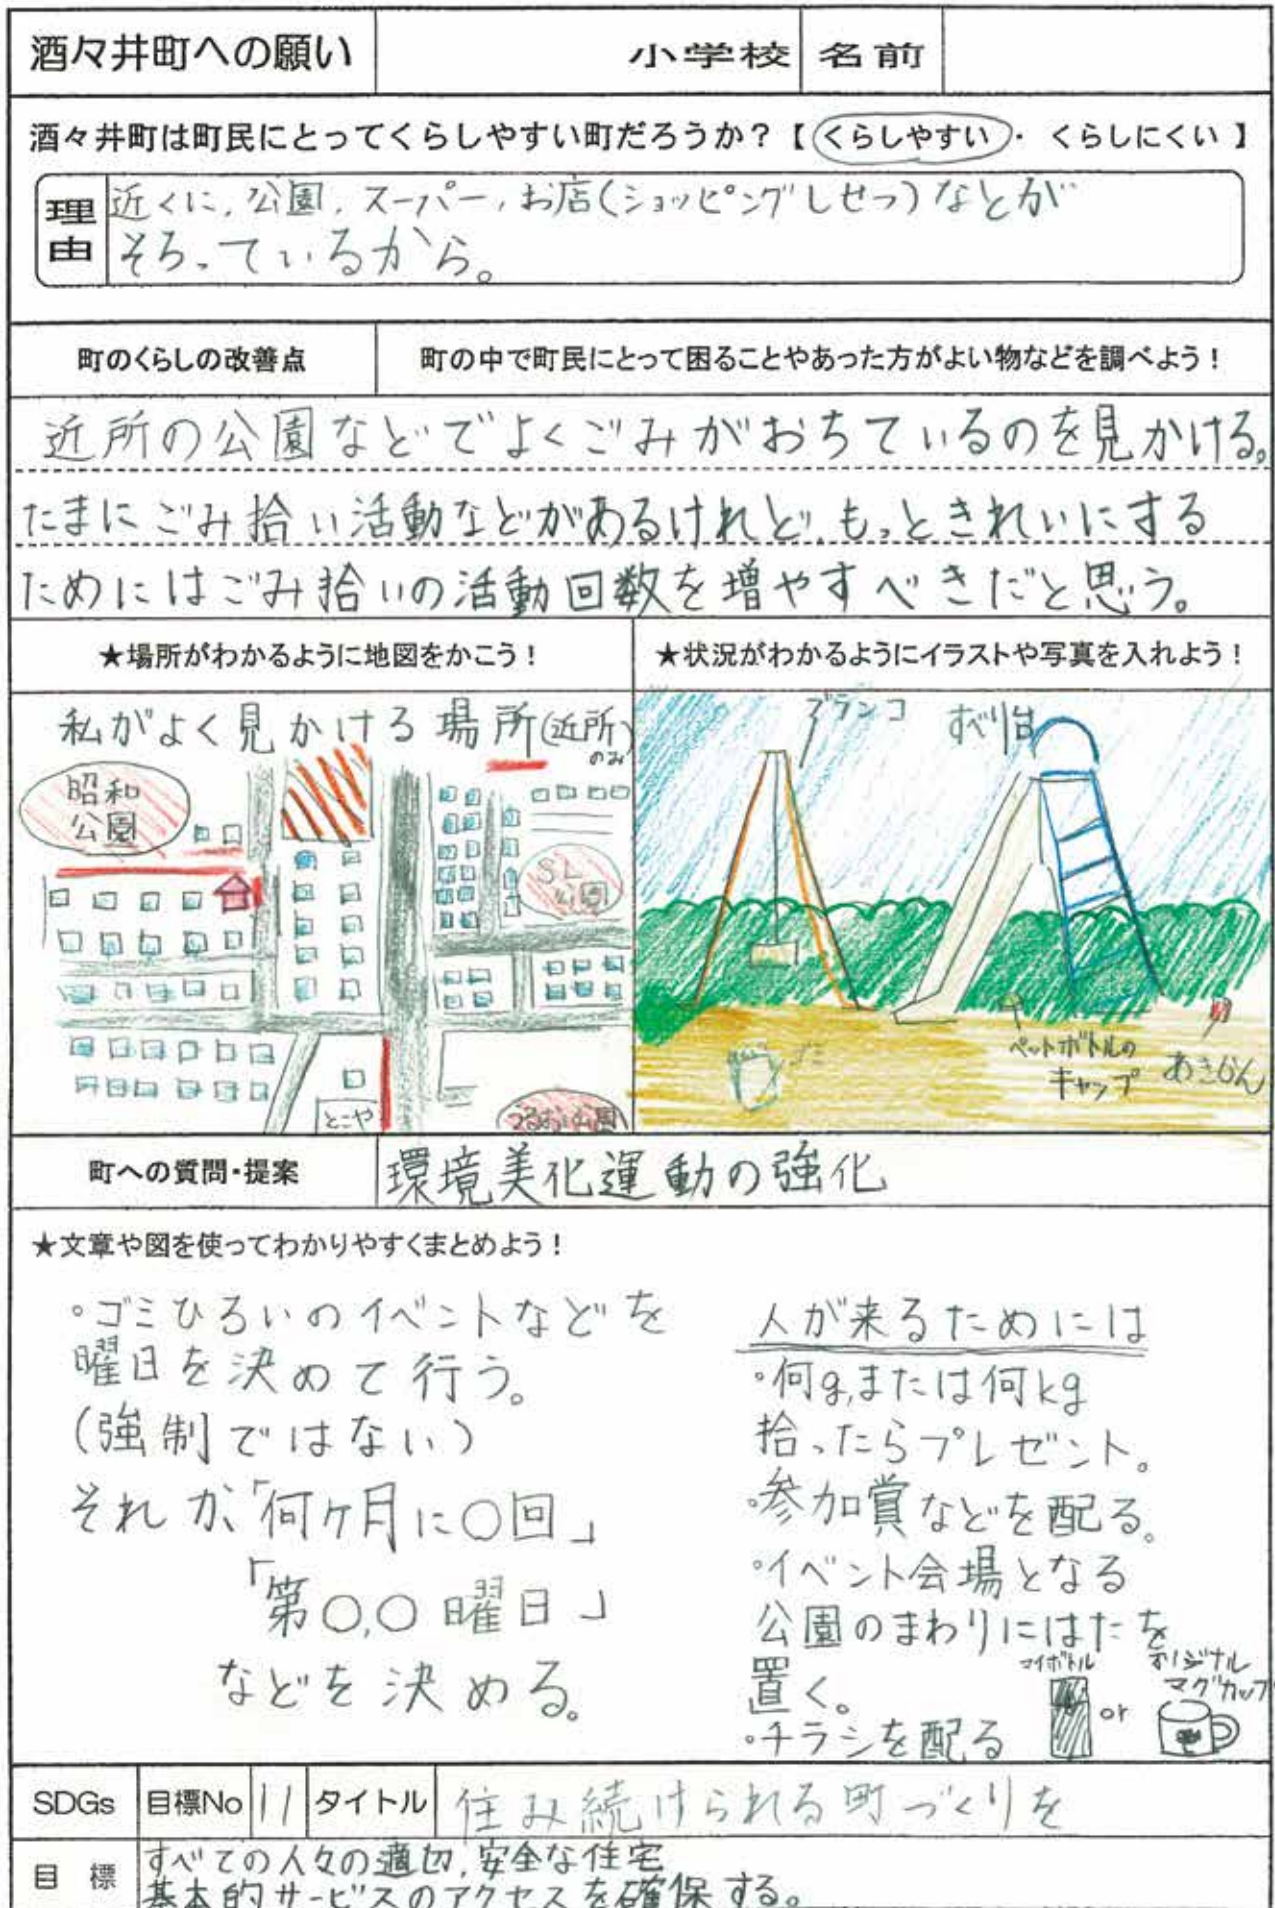 酒々井町への願い 小学校 名前
酒々井町は町民にとってくらしやすい町だろうか?【 くらしやすい ・ くらしにくい 】
理由
近くに、公園、スーパー、お店(ショッピングしせつ)などが
そろっているから。
町のくらしの改善点
町の中で町民にとって困ることやあった方がよい物などを調べよう!
近所の公園などでよくごみがおちているのを見かける。
たまにごみ拾い活動などがあるけれど、もっときれいにする
ためにはごみ拾いの活動回数を増やすべきだと思う。
★場所がわかるように地図をかこう!
私がよく見かける場所(近所)
のみ
昭和
公園
SL
公園
とこや
つるおい公園
★状況がわかるようにイラストや写真を入れよう!
ブランコ
すべり台
ゴミ
ペットボトルの
キャップ
あきかん
町への質問・提案
環境美化運動の強化
★文章や図を使ってわかりやすくまとめよう!
・ゴミひろいのイベントなどを
曜日を決めて行う。
(強制ではない)
それか、「何ヶ月に〇回」
「第〇,〇曜日」
などを決める。
人が来るためには
・何g,または何kg
拾ったらプレゼント。
・参加賞などを配る。
・イベント会場となる
公園のまわりにはたを
置く。
・チラシを配る
マイボトル
or
オリジナル
マグカップ
SDGs 目標No 11 タイトル 住み続けられる町づくりを
目標
すべての人々の適切,安全な住宅
基本的サービスのアクセスを確保する。